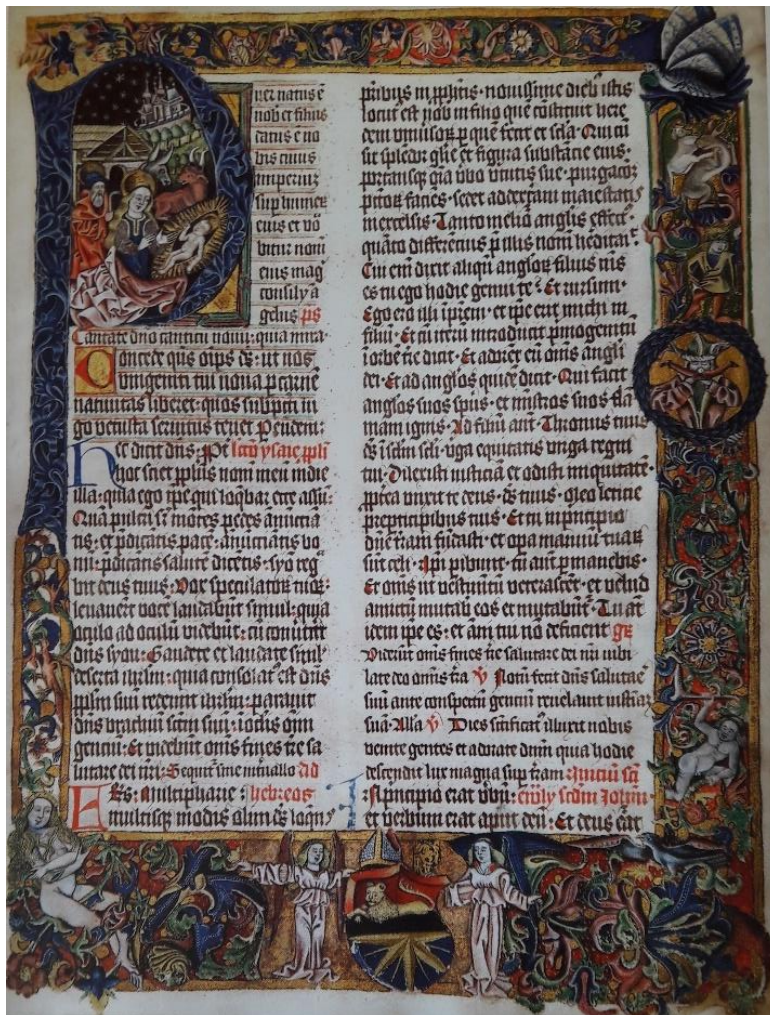 Puer natus ē
nob et filius
datus ē no
bis cuius
imperiuz
sup humeꝝ
eius et vo
bitur nom̄
eius mag
consilÿ a
gelus ps
Cantate dn̄o canticū nouū: quia mira
Concede qs̄ oīps ds̄: ut nos
vnigeniti tui noua p carnē
natiuitas liberet: quos sub peccati iu
go vetusta seruitus tenet P eundem:
Hec dicit dn̄s: Lcō ysaie ppħ
Propter hoc sciet pplūs nom̄ meū in die
illa: quia ego ip̄e qui loq̄bar ecce assū:
Quā pulcri sup̄ mōtes pedes anūcia
tis: et p̄dicatis pacē: anūciantis bo
nū: p̄dicātis salutē dicētis: syō reg
bit deus tuus: Vox speculatoꝝ tuoꝝ:
leuauerūt vocē laudabūt simul: quia
oculo ad oculū videbūt: cū conūtit
dn̄s syon: Gaudete et laudate simul
deserta irlm̄: quia consolat᷒ est dn̄s
pplm̄ suū redemit irlm̄: parauit
dn̄s brachiū sc̄m suū: ī oclis oīm
gentiū: Et videbūt om̄s fines tr̄e sa
lutare dei nr̄i: Sequit᷒ sine int̄uallo Ad
Fr̄es: Multiphariē: hebreos
multisqꝫ modis olim ds̄ loqn̄s
pr̄ibus in ꝓphetis· nouissime dieb istis
locut᷒ est nob in filio quē constituit here
dem vniusoꝝ p quē fecit et sc̄la· Qui cū
sit splēdor glīe et figura substācie eius·
portansqꝫ oīa v̄bo virtutis sue· purgacōȝ
pctōꝝ faciēs· sedet ad dexteraꝫ maiestatis
in excelsis· Tanto melior anglis effect᷒
quāto differencius p illis nom̄ hēditat᷒·
Cui em̄ dixit aliqn̄ angloꝝ filius meus
es tu ego hodie genui te? Et rursum·
Ego ero illi in prem̄· et ip̄e erit michi in
filiū· Et cū iterū introducit p̄mogenitū
ī orbē tr̄e dicit· Et adorēt eū om̄s angli
dei· Et ad anglos quidē dicit· Qui facit
anglos suos sp̄us· et mīstros suos flā
mam ignis· Ad filiū aūt· Thronus tuus
ds̄ ī sclm̄ scli· v̄ga equitatis virga regni
tui· Dilexisti iusticiā et odisti iniquitatē·
ppt̄ea vnxit te deus· ds̄ tuus· oleo leticie
pre pticipibus tuis· Et tu in principio
dn̄e t̄ram fūdasti· et opa manuū tuaꝝ
sūt celi· Ip̄i pibunt· tu aut̄ p manebis·
Et om̄s ut vestimētū veterascēt· et velud
amictū mutab eos et mutabūt᷒· Tu aūt
idem ip̄e es· et anni tui nō deficient gr̄
Viderūt om̄s fines tr̄e salutare dei nr̄i iubi
late deo om̄is t̄ra ℣ Notū fecit dn̄s salutare
suū ante conspectū genciū reuelauit iusticiā
suā· Alla ℣ Dies sc̄ificat᷒ illuxit nobis
venite gentes et adorate dn̄m quia hodie
descendit lux magna sup t̄ram Iniciū sc̄i
In principio erat v̄bū: ewlÿ scd̄m Johēm·
et verbum erat aput deū: Et deus erat